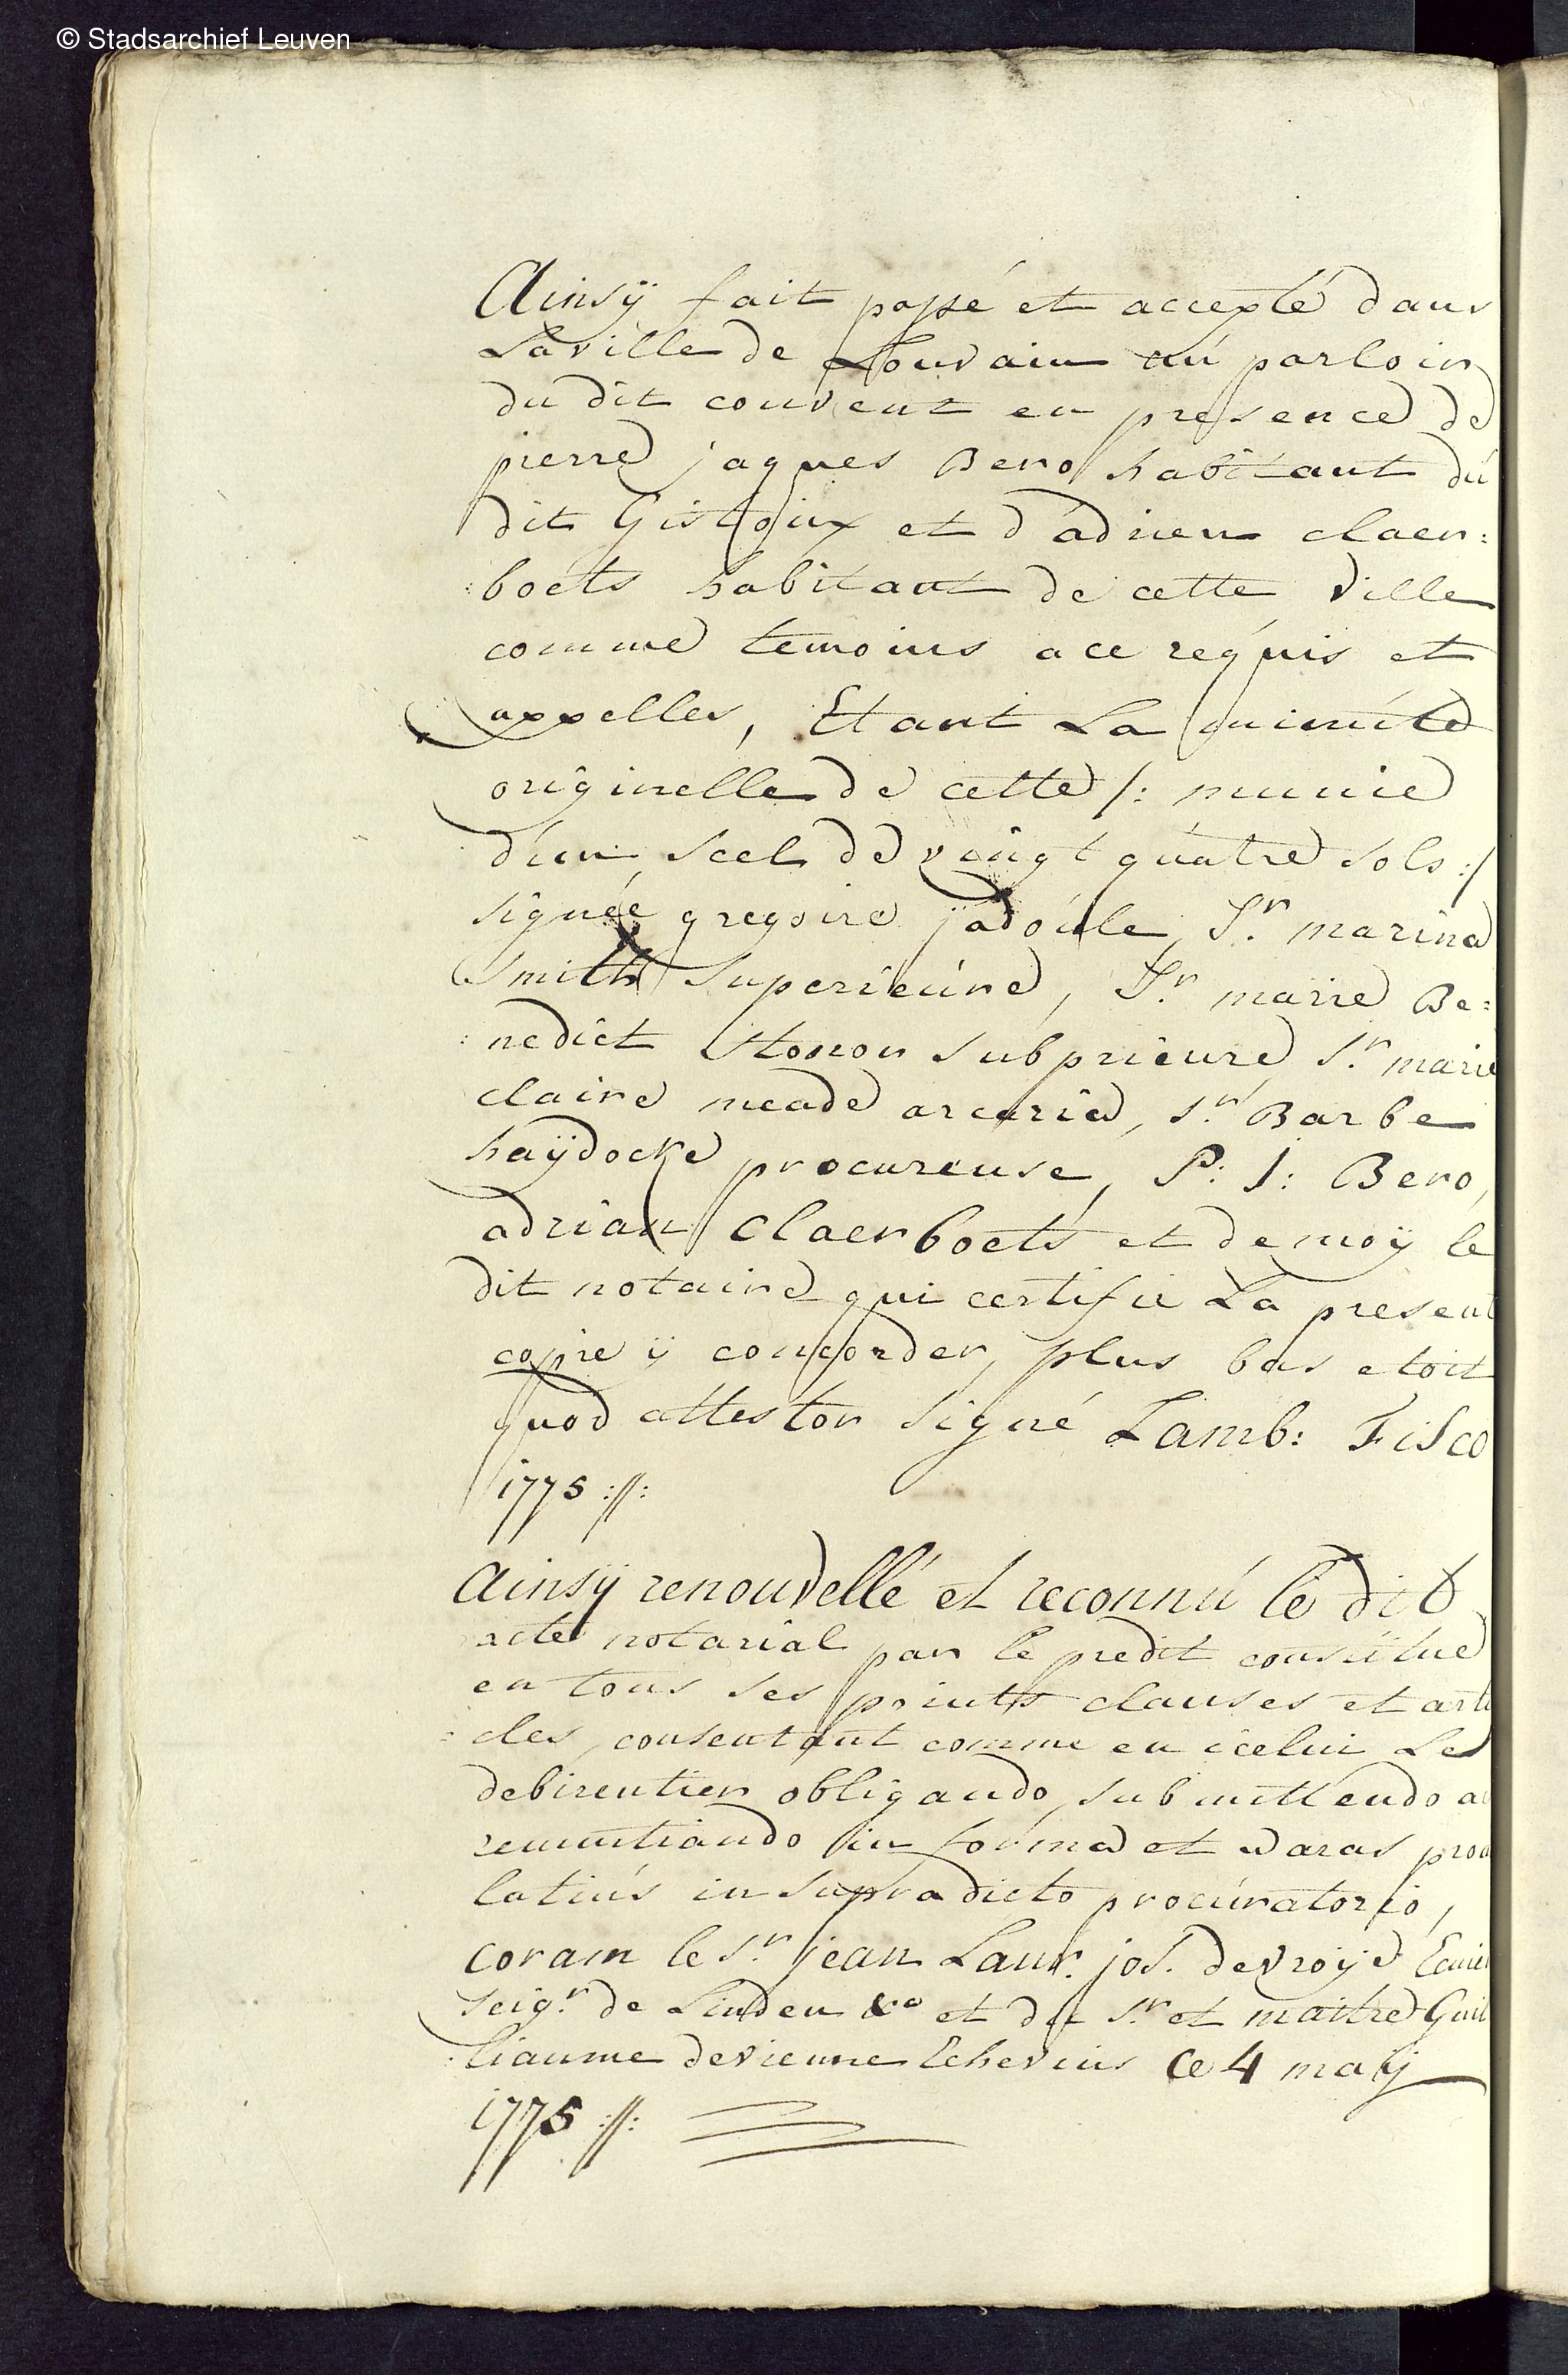 © Stadsarchief Leuven
Ainsÿ fait passé et accepté dans
La ville de Louvain au parloir
du dit couvent en presence de
pierre jaques Bero habitant du
dit Gistoux et d'adrien claer:
:boets habitant de cette ville
comme temoins a ce requis et
appelles, Etant La minute
originelle de cette /: munie
d'un scel de vingt quatre sols :/
signée gregoire jadoule, Sr. marina
Smith Superieure, Sr. marie Be:
:nedict Stonor subprieure, Sr. marie
claire meade arcaria, sr. Barbe
haÿdocke procureuse, P: J: Bero,
adrian Claerboets et de moÿ le
dit notaire qui certifie La present
copie ÿ concorder, plus bas etoit
quod attestor signé Lamb: Fisco
1775 ://:
Ainsÿ renouvellé et reconnu le dit
acte notarial par le predit constitué
en tous ses points clauses et arti
:cles, consentant comme en icelui Le
debirentier obligando, submittendo ac
renuntiando in forma et waras prout
latius in supradicto procuratorio,
coram le sr. jean Laur. jos. de vroÿe Ecuier
seigr. de Linden &a et du sr. et maitre Guil
:liaume de vienne Echevins ce 4 maÿ
1775 ://: